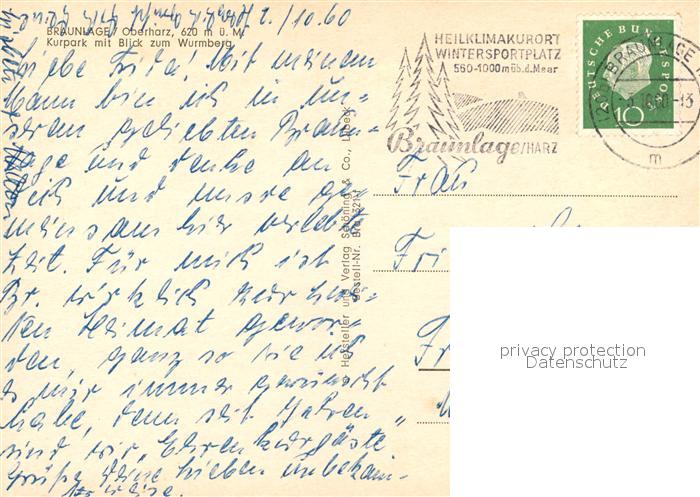 2./10.60
BRAUNLAGE / Oberharz, 620 m ü. M.
Kurpark mit Blick zum Wurmberg
Liebe Frida! Mit meinem
Mann bin ich in un-
serem geliebten Braun-
lage und denke an
Dich und unsere ge-
meinsam hier verlebte
Zeit. Für mich ist
Br. wirklich zur zwei-
ten Heimat gewor-
den, ganz so wie ich
es mir immer gewünscht
habe, denn seit Jahren
sind wir Ehrenkurgäste
Grüße Deine lieben unbekann-
ter weise.
Hersteller und Verlag Schöning & Co., Lübeck
Bestell-Nr.
HEILKLIMAKURORT
WINTERSPORTPLATZ
560-1000 m üb. d. Meer
Braunlage/HARZ
DEUTSCHE BUNDESPOST
10
BRAUNLAGE
-13
m
Frau
privacy protection
Datenschutz